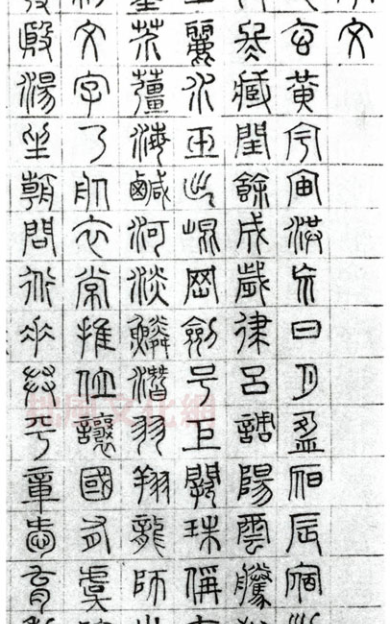 文
玄黃宇宙洪荒日月盈昃辰宿
冬藏閏餘成歲律呂調陽雲騰
麗水玉出崐岡劍号巨闕珠稱
芥薑海鹹河淡鱗潛羽翔龍師
文字乃服衣常推位讓國有虞
殷湯坐朝問道垂拱平章愛育